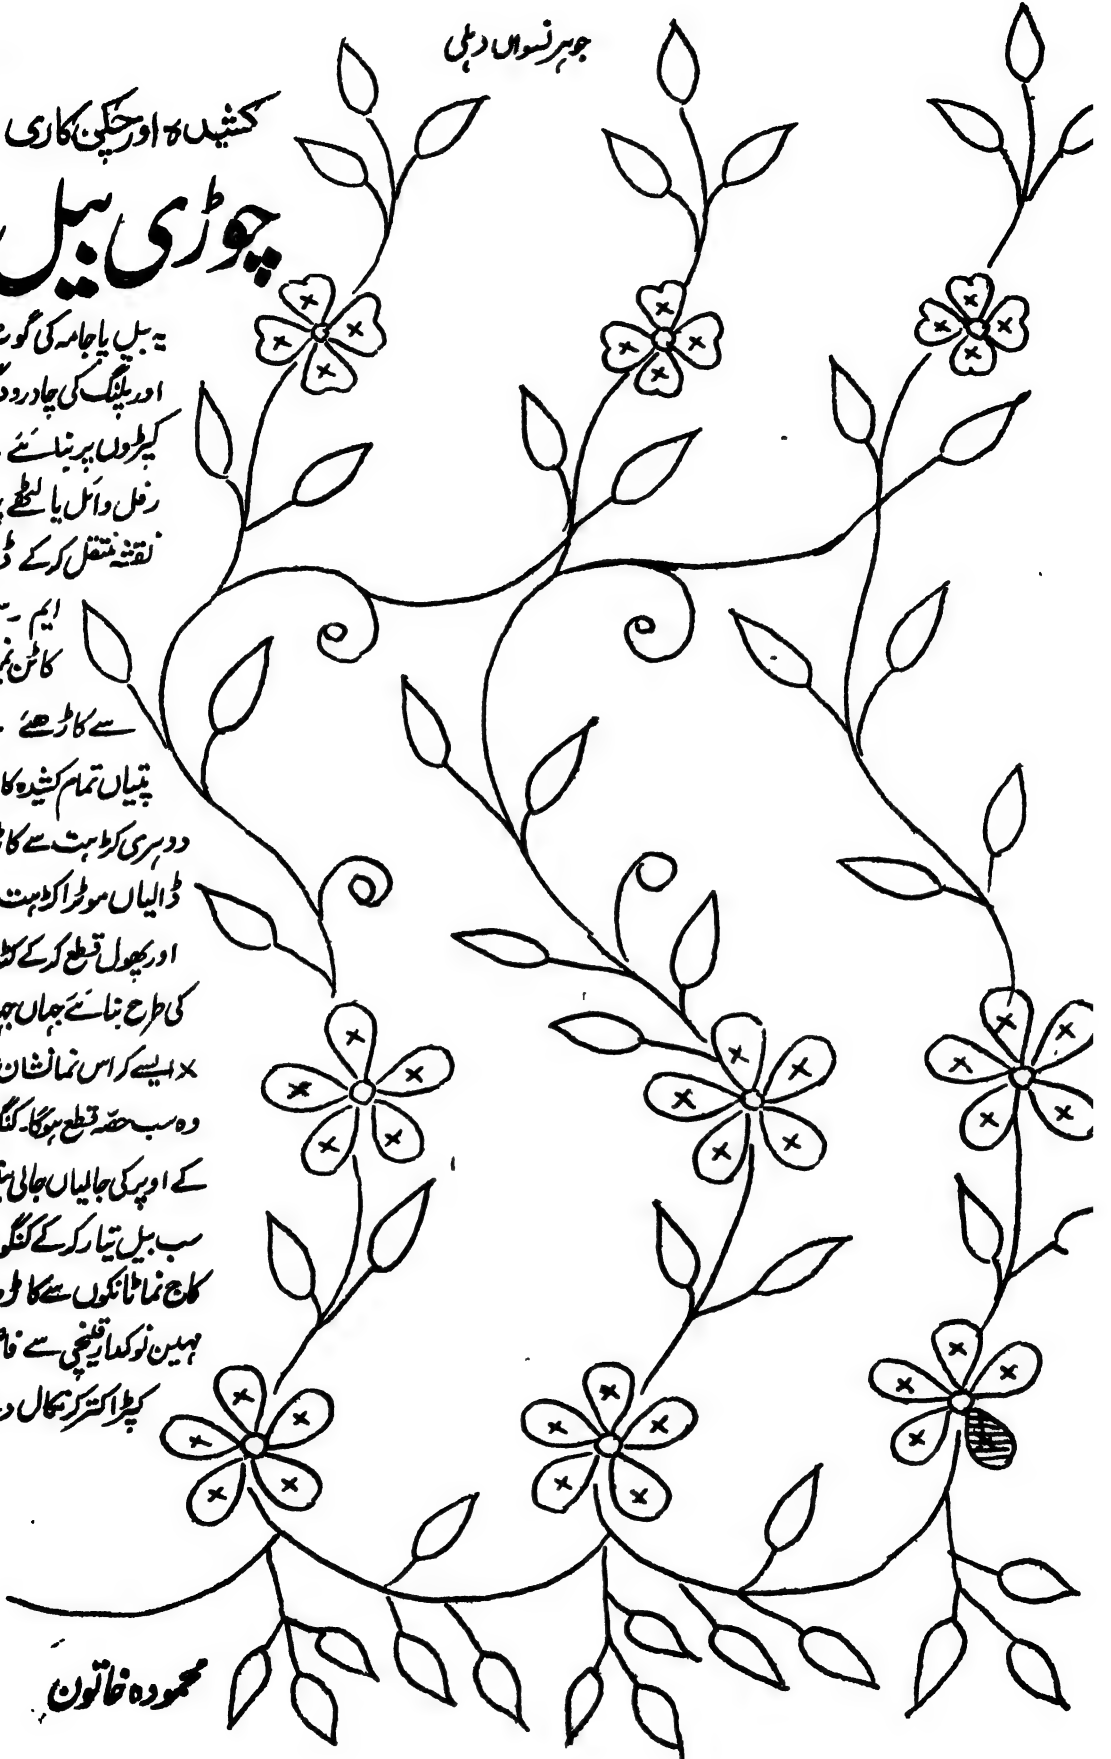 جوہر نسواں دہلی
کشیدہ اور چکن کاری
چوڑی بیل
یہ بیل پاجامہ کی گوٹ
اور پلنگ کی چادر و
کپڑوں پر بنائے
رفل وائل یا لٹھے پر
نقشہ منتقل کرکے ڈ
ایم
کاٹن
سے کاڑھئے
پتیاں تمام کشیدہ کا
دوہری کڑہت سے
ڈالیاں موٹرا کڑہت
اور پھول قطع کرکے
کی طرح بنائے جہاں
× ایسے کراس نما نشان
وہ سب حصہ قطع ہوگا۔
کے اوپر کی جالیاں جالی
سب بیل تیار کرکے کنگو
کاج نما ٹانکوں سے
مہین نوکدار قینچی سے
کپڑا کتر کر نکال
محمودہ خاتون